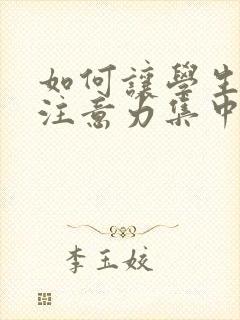 如何讓學生
注意力集中
李玉姣